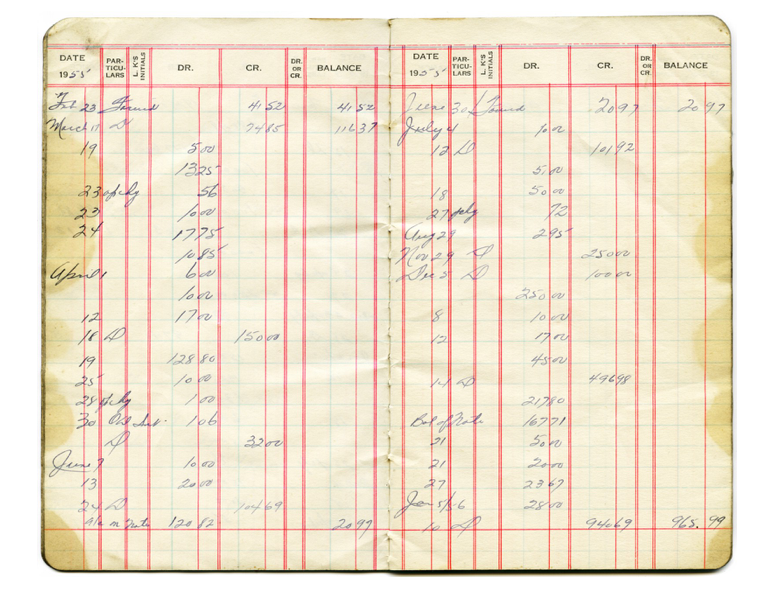 DATE PAR-TICU-LARS L. K'S INITIALS DR. CR. DR. OR CR. BALANCE
1955
Feb 23 Forward 41 52 41 52
March 17 D 74 85 116 37
19 5 00
13 25
23 op chg 56
23 10 00
24 17 75
10 85
April 1 6 00
10 00
12 17 00
18 D 150 00
19 128 80
25 10 00
28 op chg 1 00
30 1 06
D 32 00
June 7 10 00
13 20 00
24 D 104 69
a/c on Note 120 82 20 97
DATE PAR-TICU-LARS L. K'S INITIALS DR. CR. DR. OR CR. BALANCE
1955
June 30 Forward 20 97 20 97
July 4 10 00
12 D 101 92
5 00
18 50 00
27 chg 72
Aug 29 2 95
Nov 29 D 250 00
Dec 5 D 100 00
250 00
8 10 00
12 17 00
45 00
14 D 496 98
217 80
Bal of Note 167 71
21 5 00
21 20 00
27 23 67
Jan 5/56 28 00
10 D 940 69 965.99